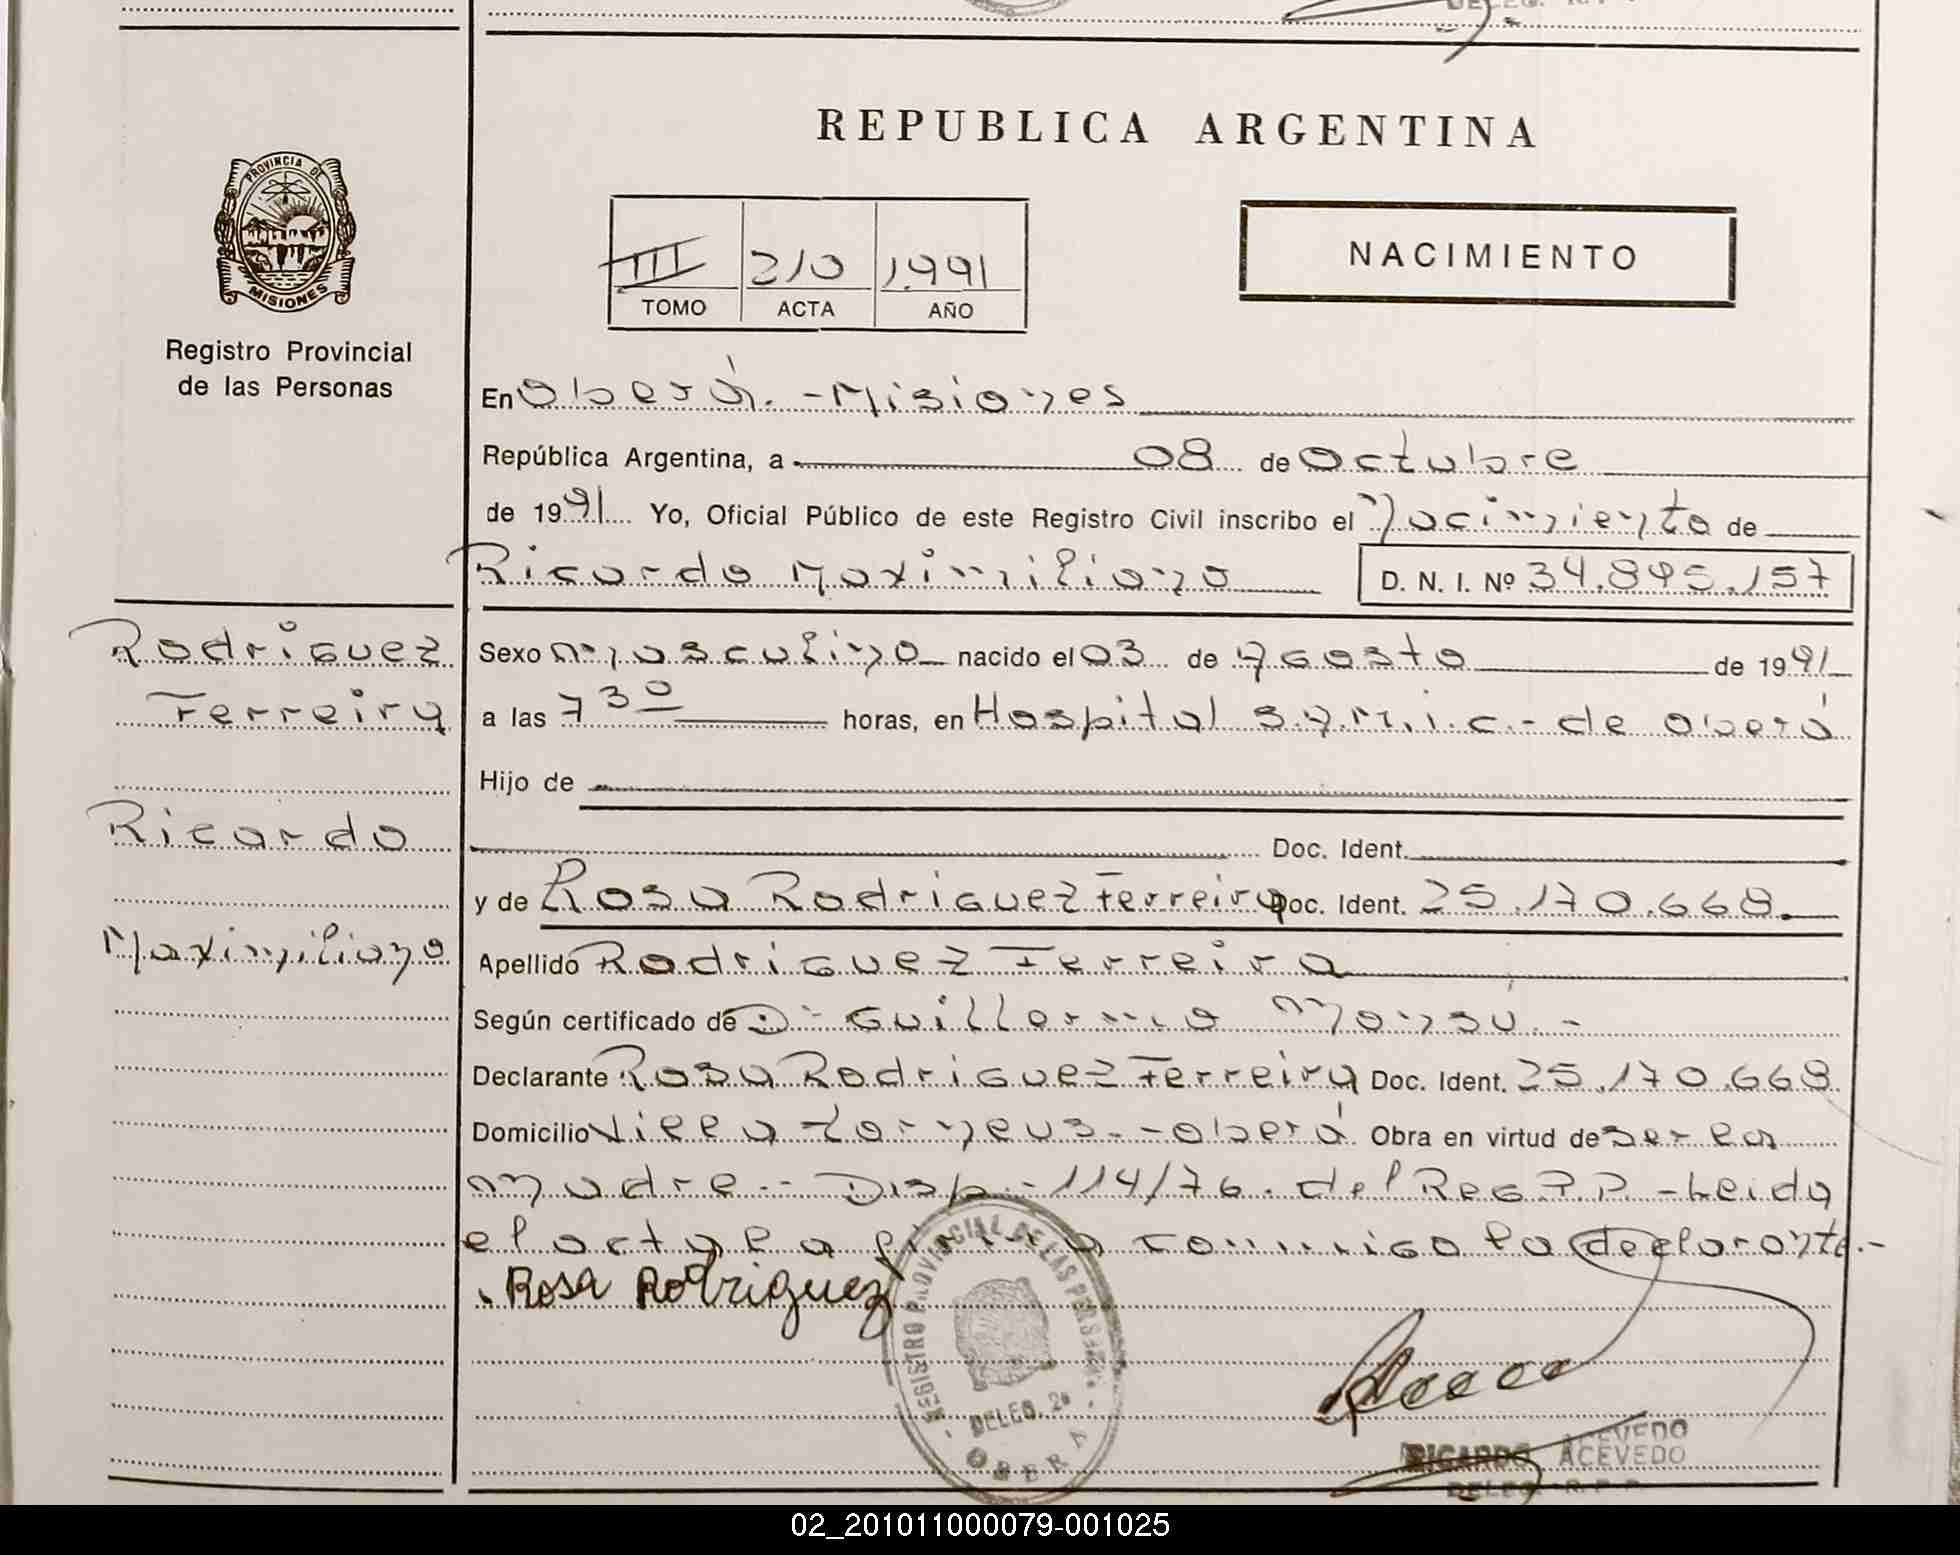 REPUBLICA ARGENTINA
PROVINCIA DE
MISIONES
Registro Provincial
de las Personas
III 210 1.991
TOMO ACTA AÑO
NACIMIENTO
En Oberá.-Misiones
República Argentina, a 08 de Octubre
de 1991 Yo, Oficial Público de este Registro Civil inscribo el Nacimiento de
Ricardo Maximiliano D. N. I. Nº 34.895.157
Rodriguez
Ferreira
Ricardo
Maximiliano
Sexo masculino nacido el 03 de Agosto de 1991
a las 7 30 horas, en Hospital S.A.M.i.c.- de oberá
Hijo de
Doc. Ident.
y de Rosa Rodriguez Ferreira Doc. Ident. 25.170.668.
Apellido Rodriguez Ferreira
Según certificado de Dr Guillermo Monsú.-
Declarante Rosa Rodriguez Ferreira Doc. Ident. 25.170.668
Domicilio Villa Torneus.-oberá Obra en virtud de ser la
madre.- Disp.-114/76. del Reg.P.P.-Leida
el acta la firma conmigo la declarante.-
Rosa Rodriguez
REGISTRO PROVINCIAL DE LAS PERSONAS
DELEG. 2a
OBERA
RICARDO ACEVEDO
DELEG. R.P.P.
02_201011000079-001025